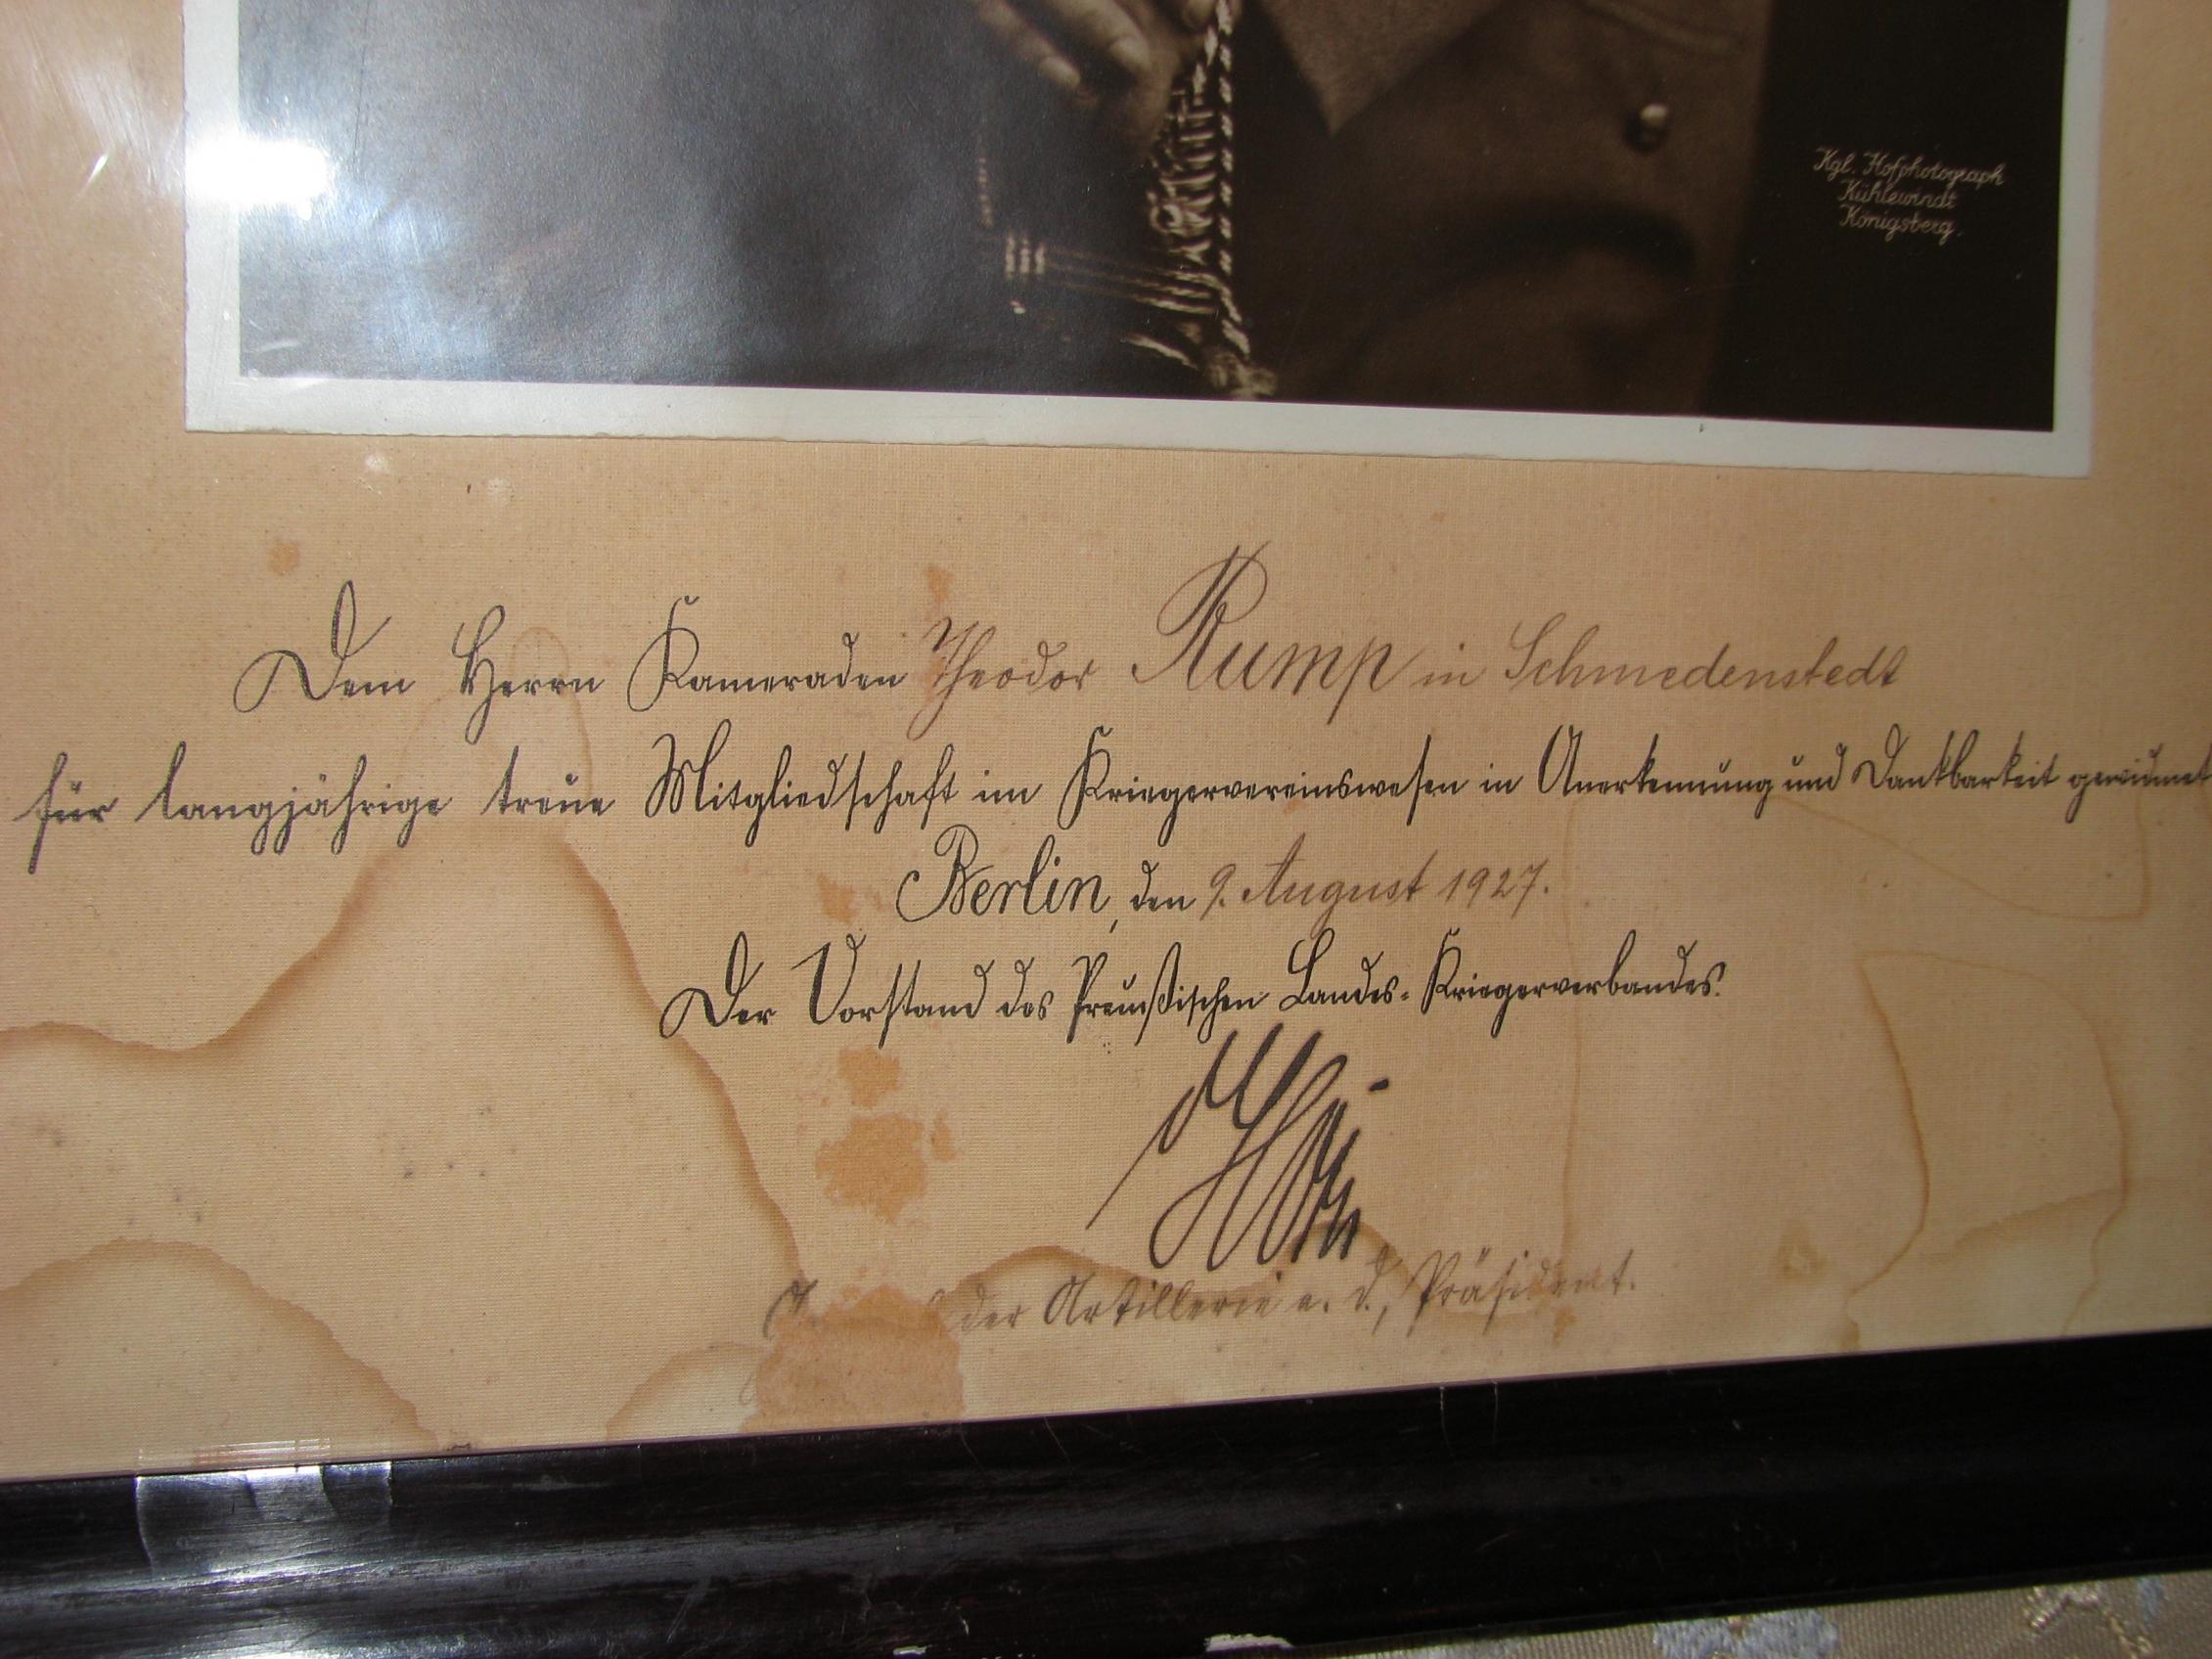 Kgl. Hofphotograph
Kühlewindt
Königsberg.
Dem Herrn Kameraden Theodor Rump in Schmedenstedt
für langjährige treue Mitgliedschaft im Kriegervereinswesen in Anerkennung und Dankbarkeit gewidmet
Berlin, den 9. August 1927.
Der Vorstand des Preußischen Landes-Kriegerverbandes.
der Artillerie a. d., Präsident.